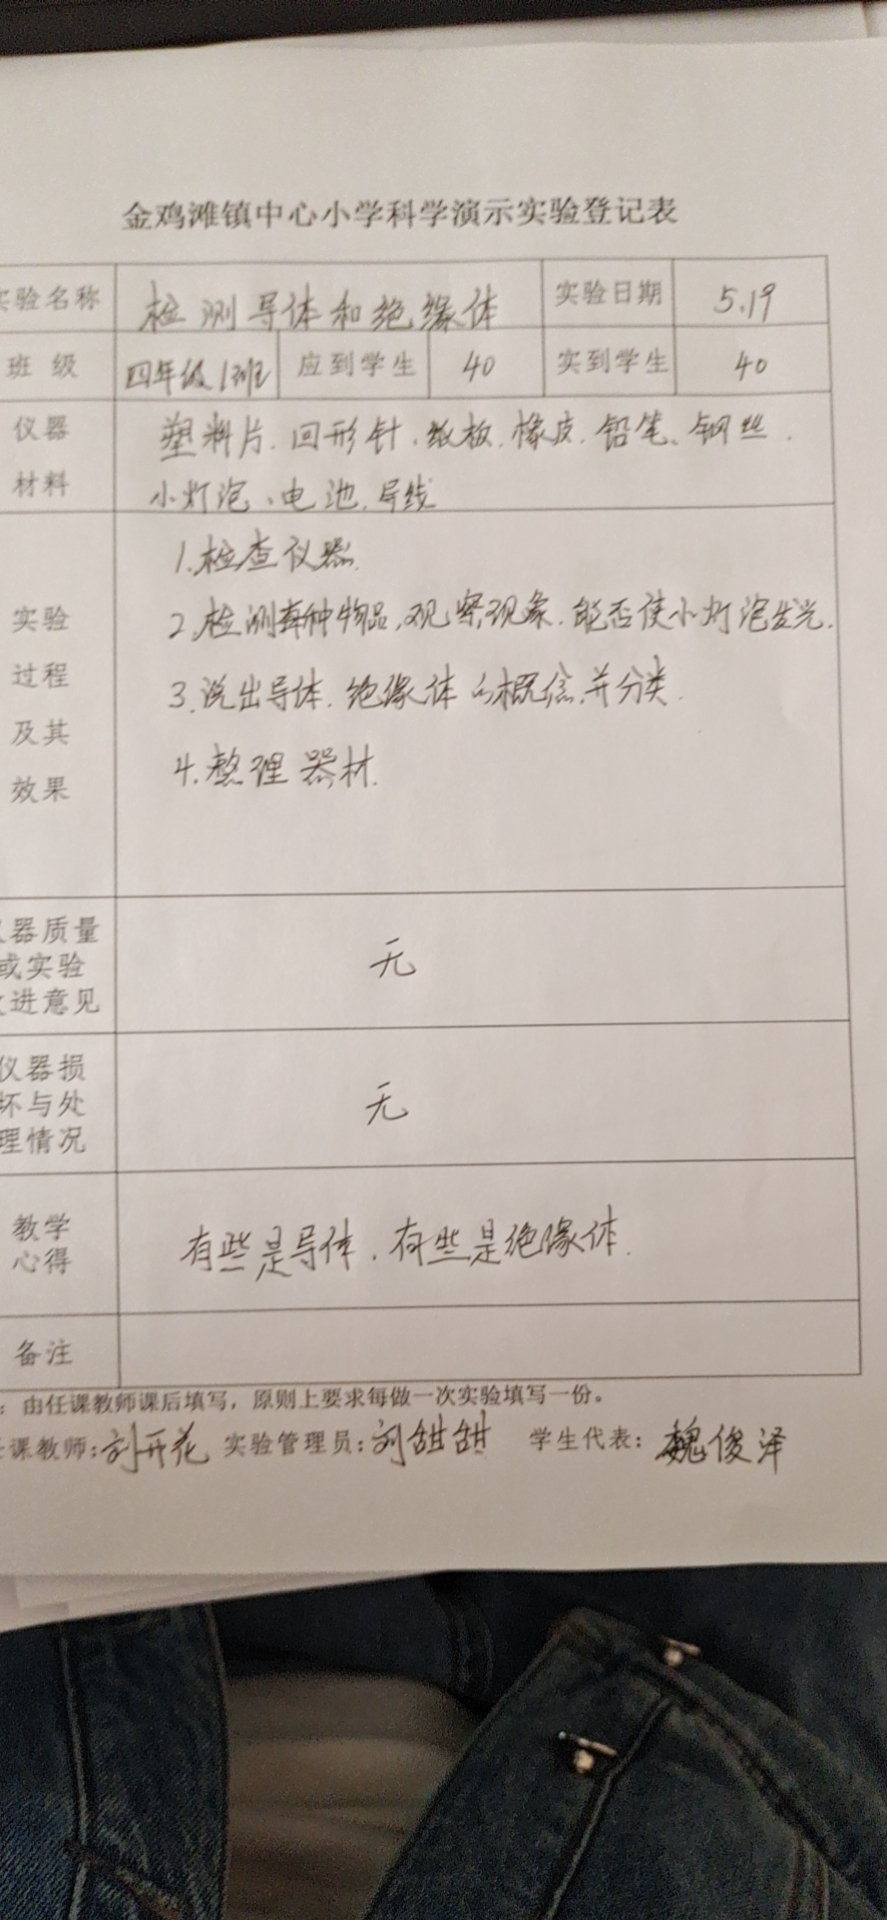 金鸡滩镇中心小学科学演示实验登记表
实验名称 检测导体和绝缘体 实验日期 5.19
班级 四年级1班 应到学生 40 实到学生 40
仪器 塑料片、回形针、纸板、橡皮、铅笔、钢丝、
材料 小灯泡、电池、导线
1.检查仪器
实验 2.检测每种物品,观察现象、能否使小灯泡发光.
过程 3.说出导体、绝缘体的概念,并分类.
及其 4.整理器材.
效果
仪器质量
或实验 无
改进意见
仪器损
坏与处 无
理情况
教学 有些是导体、有些是绝缘体.
心得
备注
:由任课教师课后填写,原则上要求每做一次实验填写一份。
任课教师:刘开花 实验管理员:刘甜甜 学生代表:魏俊泽